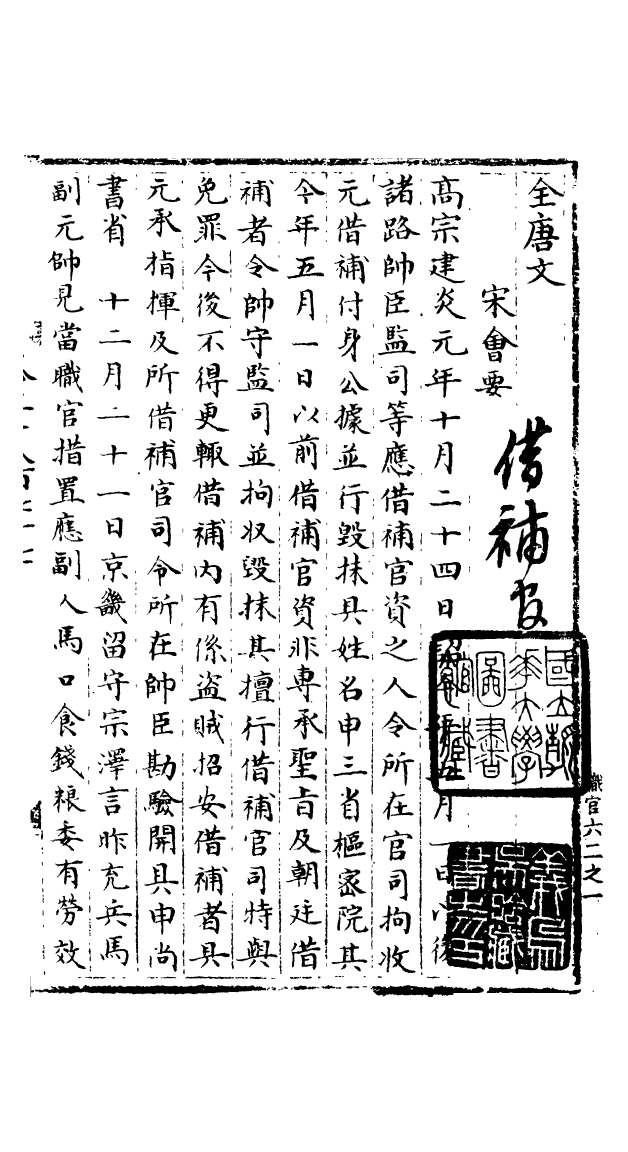 全唐文
宋會要
借補官
高宗建炎元年十月二十四日詔五月一日以後
諸路帥臣監司等應借補官資之人令所在官司拘收
元借補付身公據並行毀抹具姓名申三省樞密院其
今年五月一日以前借補官資非専承聖旨及朝廷借
補者令帥守監司並拘收毀抹其擅行借補官司特與
免罪今後不得更輙借補內有係盜賊招安借補者具
元承指揮及所借補官司令所在帥臣勘驗開具申尚
書省　十二月二十一日京畿留守宗澤言昨充兵馬
副元帥見當職官措置應副人馬口食錢粮委有勞效
國立
大學
圖書
職官六二之一